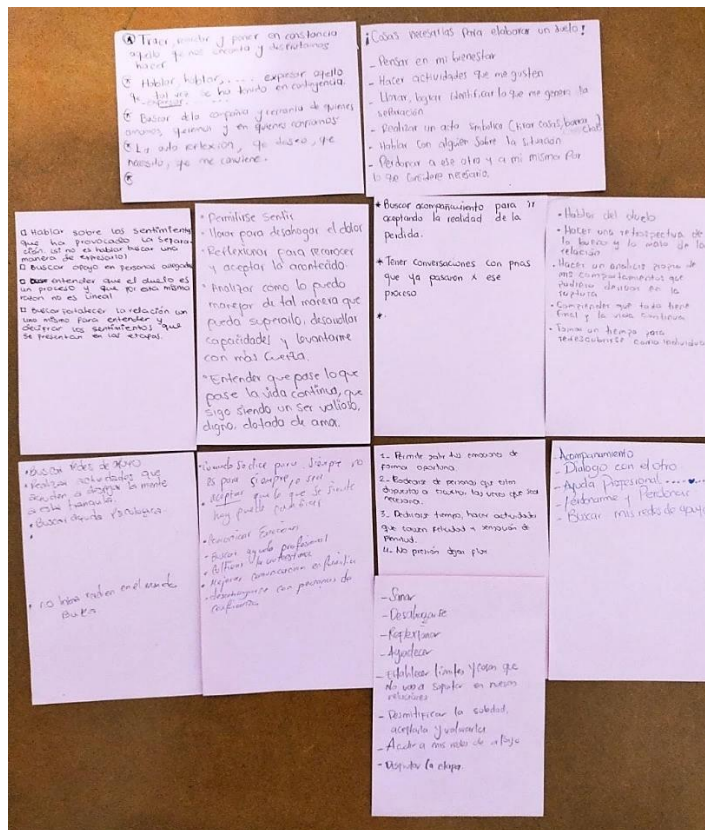 Traer, recordar y poner en constancia
aquello que nos encanta y disfrutamos
hacer
Hablar, hablar, ..... expresar aquello
tal vez se ha tenido en contingencia.
expresar.......
Buscar de la compañía y cercanía de quienes
amamos, queremos y en quienes confiamos
La auto reflexión, que deseo, que
necesito, que me conviene.
¡Cosas necesarias para elaborar un duelo!
- Pensar en mi bienestar
- Hacer actividades que me gusten
- Llorar, lograr identificar lo que me genera la
separación
- Realizar un acto simbólico (tirar cosas, borrar
chats)
- Hablar con alguien sobre la situación
- Perdonar a ese otro y a mi mismo por
lo que considere necesario.
Hablar sobre los sentimientos
que ha provocado la separa-
ción, (si no es hablar buscar una
manera de expresarlo)
Buscar apoyo en personas allegadas
entender que el duelo es
un proceso y que por esta misma
razon no es lineal
Buscar fortalecer la relación con
uno mismo para entender y
descifrar los sentimientos que
se presentan en las etapas.
• Permitirse sentir
• llorar para desahogar el dolor
• Reflexionar para reconocer
y aceptar lo acontecido.
• Analizar como lo puedo
manejar de tal manera que
pueda superarlo, desarrollar
capacidades y levantarme
con más fuerza.
• Entender que pase lo que
pase la vida continua, que
sigo siendo un ser valioso,
digno, dotado de amor.
* Buscar acompañamiento para ir
aceptando la realidad de la
perdida.
* Tener conversaciones con pnas
que ya pasaron x ese
proceso
*.
• Hablar del duelo
• Hacer una retrospectiva de
lo bueno y lo malo de la
relación
• Hacer un analisis propio de
mis comportamientos que
pudieron en la
ruptura
• Comprender que todo tiene
final y la vida continua.
• Tomar un tiempo para
redescubrirse como individuo
• Buscar redes de apoyo
• Realizar actividades que
ayuden a despejar la mente
a estar tranquila.
• Buscar ayuda Psicologica.
• no
• Cuando se dice para siempre no
es para siempre
aceptar que lo que se siente
hoy puede cambiar
• Comunicar Emociones
• Buscar ayuda profesional
• Cultivar la autoestima
• Mejorar comunicación en familia
• desahogarse con personas de
confianza
1- Permite salir tus emociones de
forma oportuna.
2- Rodearse de personas que esten
dispuestos a escuchar las veces que sea
necesaria.
3- Dedicarse tiempo, hacer actividades
que causen felicidad y sensación de
Plenitud.
4- No presión dejar fluir
- Acompañamiento
- Dialogo con el otro
- Ayuda Profesional.....
- Perdonarme y Perdonar
- Buscar mis redes de apoyo
- Sanar
- Desahogarse
- Reflexionar
- Agradecer
- establecer límites y cosas que
No voy a soportar en nuevas
relaciones
- Desmitificar la soledad,
aceptarla y valorarla
- Acudir a mis redes de apoyo
- Disfrutar la etapa.